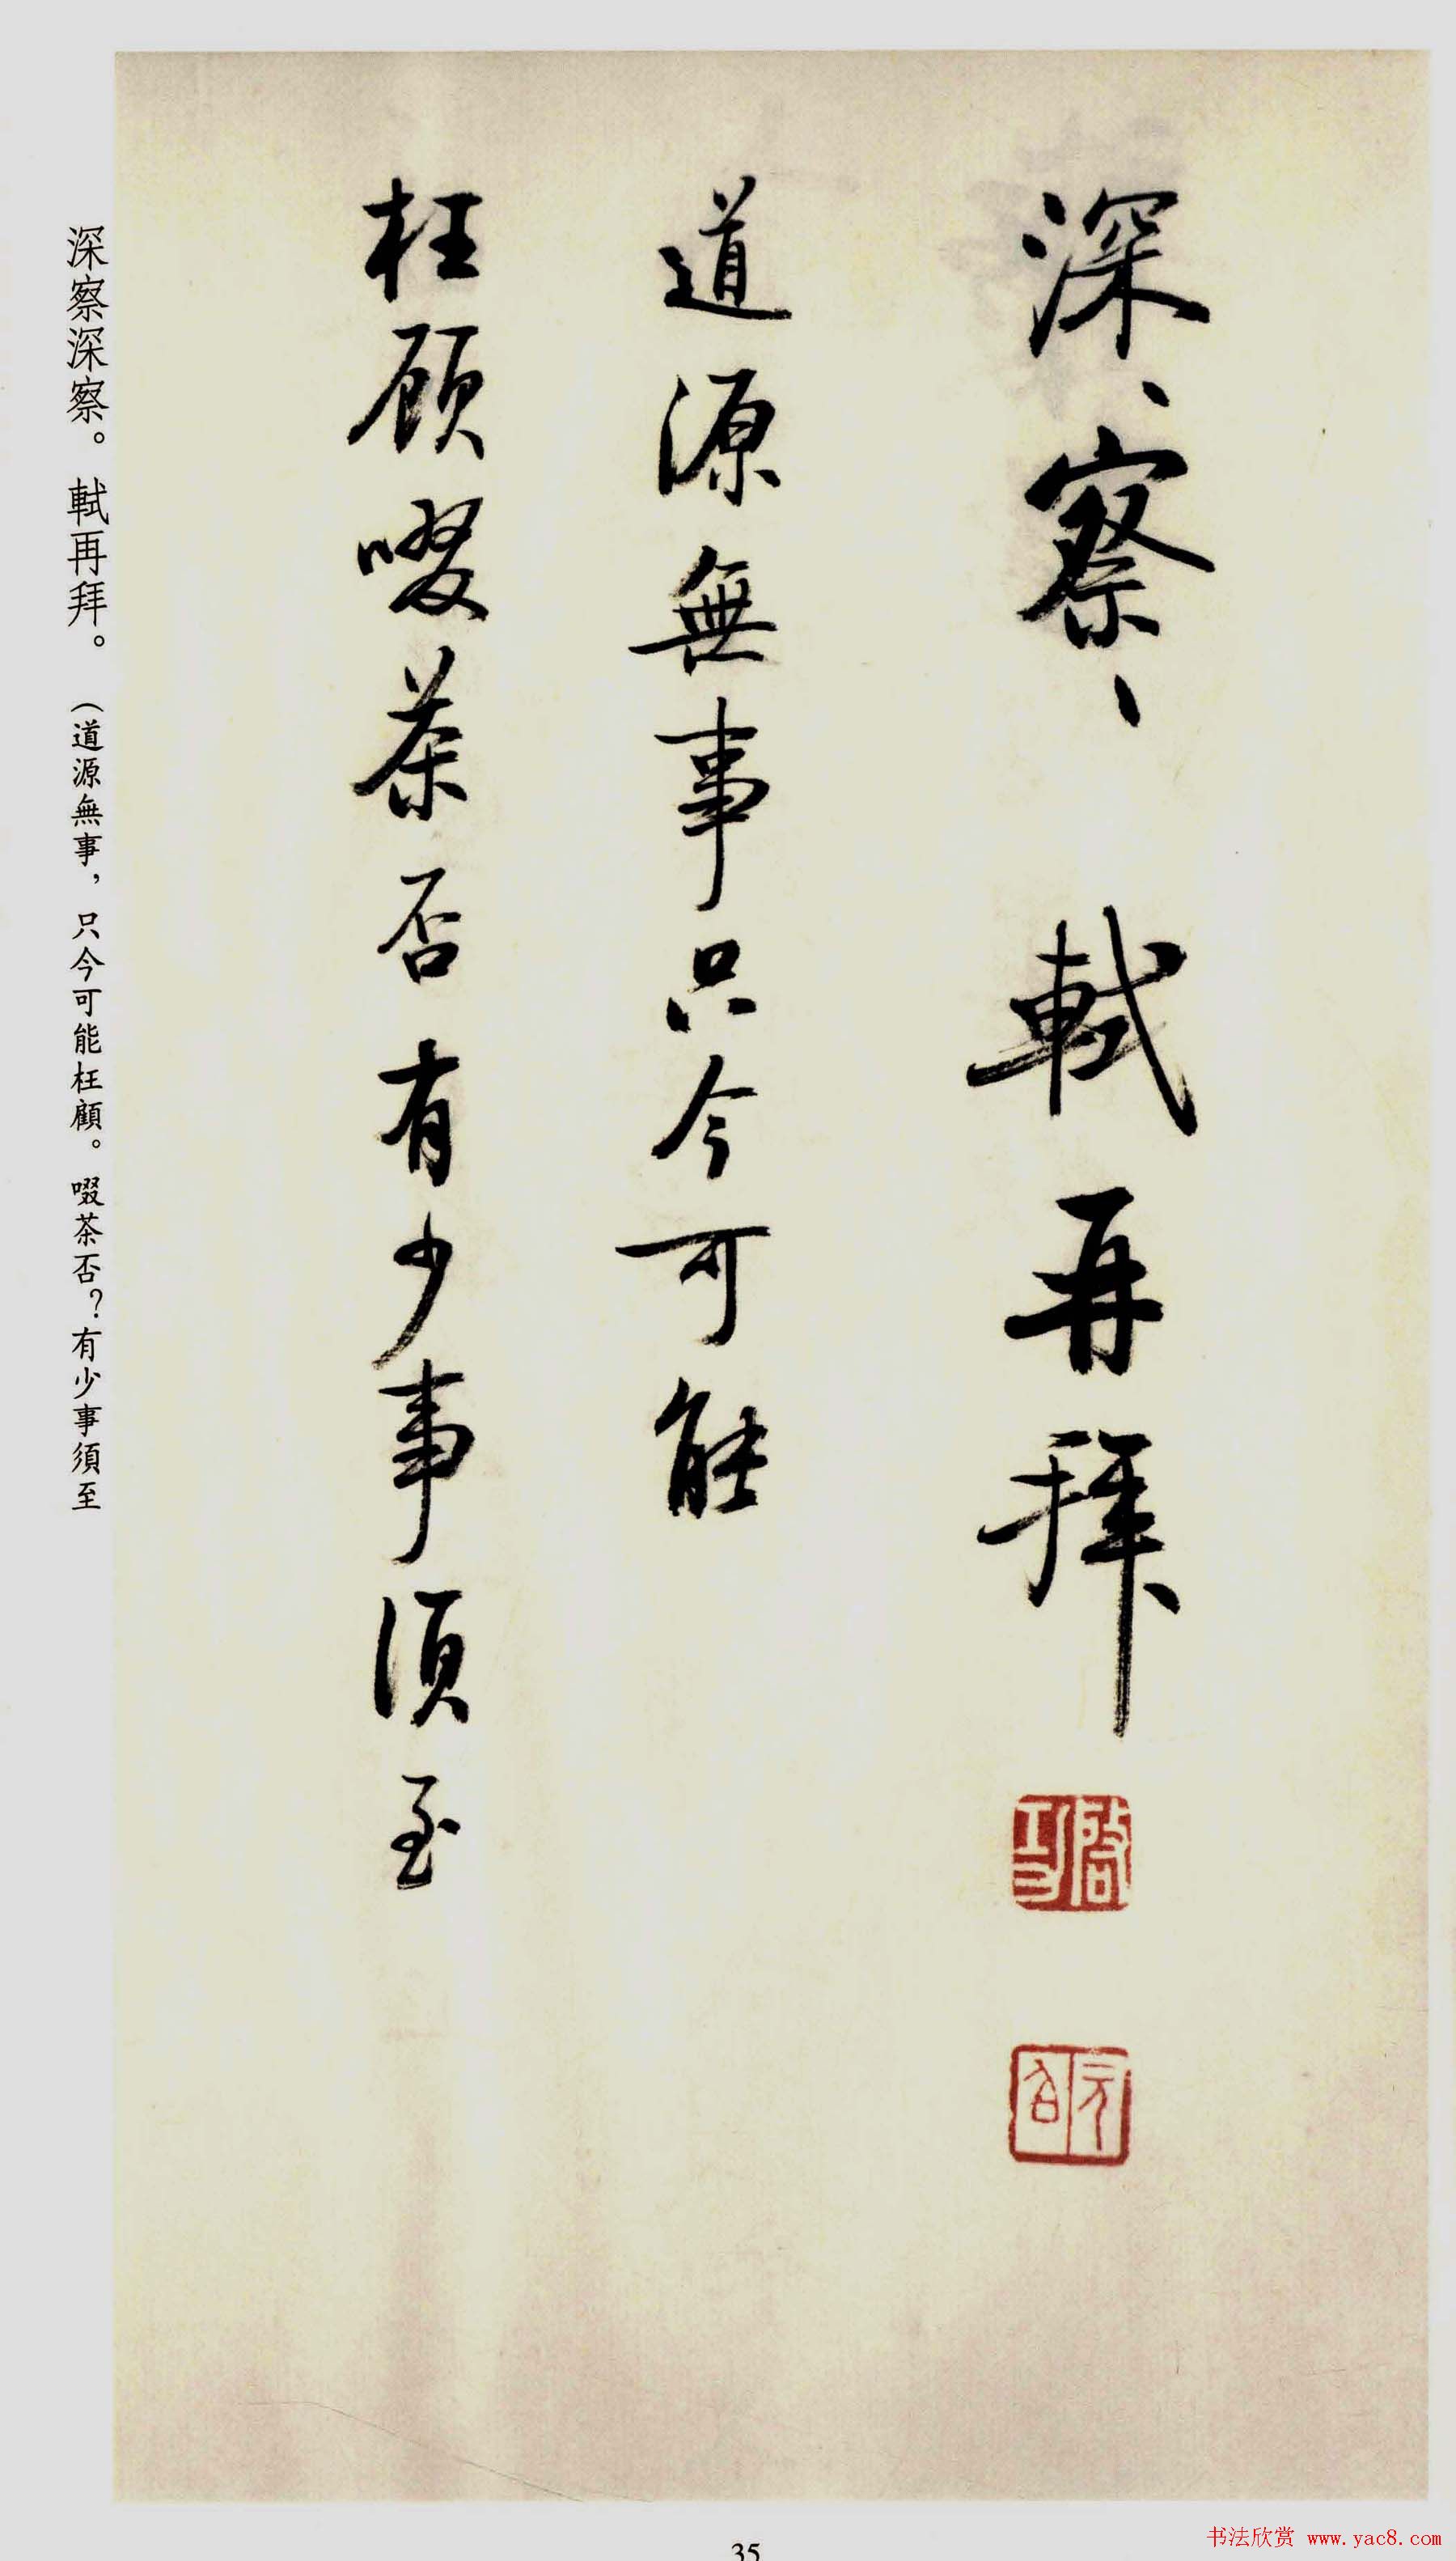 深、察、 軾再拜
道源無事只今可能
枉顧啜茶否有少事須至
啟功
元白
深察深察。軾再拜。（道源無事，只今可能枉顧。啜茶否？有少事須至
35
书法欣赏 www.yac8.com